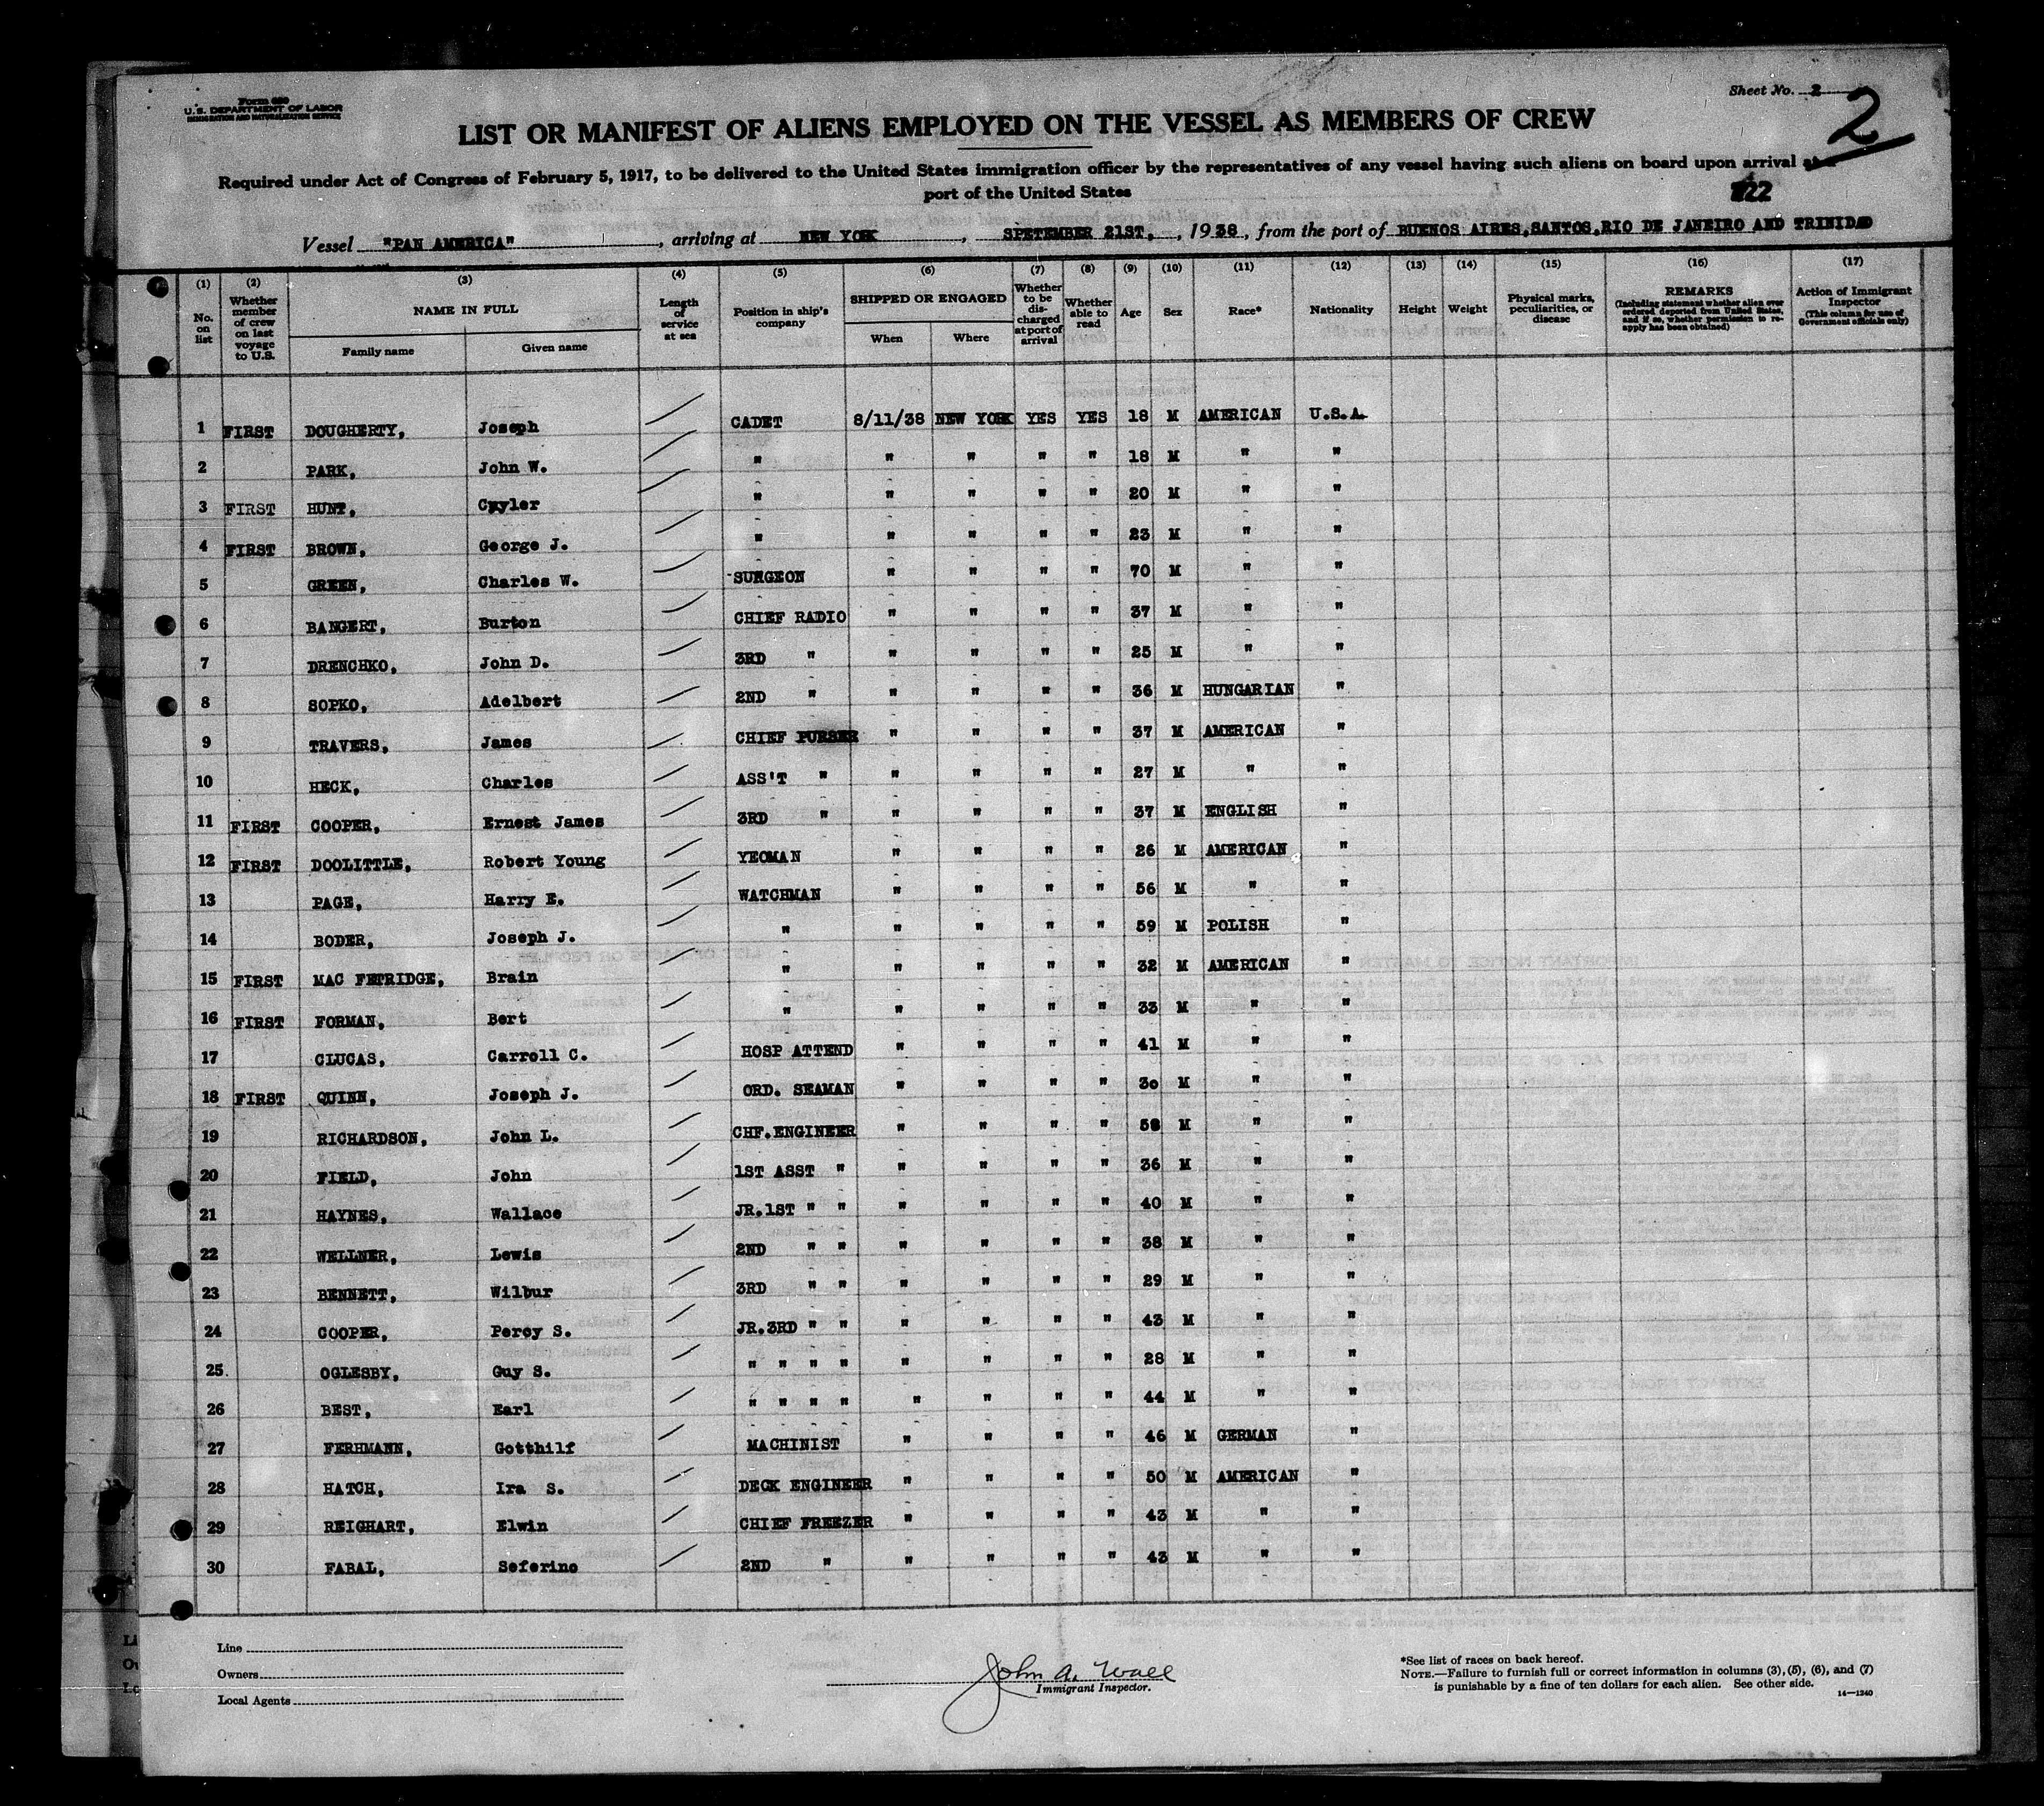 Form 680
U.S. DEPARTMENT OF LABOR
IMMIGRATION AND NATURALIZATION SERVICE
Sheet No. 2
2
LIST OR MANIFEST OF ALIENS EMPLOYED ON THE VESSEL AS MEMBERS OF CREW
Required under Act of Congress of February 5, 1917, to be delivered to the United States immigration officer by the representatives of any vessel having such aliens on board upon arrival at a
port of the United States
Vessel "PAN AMERICA", arriving at NEW YORK, SPETEMBER 21ST, , 1938, from the port of BUENOS AIRES,SANTOS,RIO DE JANEIRO AND TRINIDAD
(1) (2) (3) (4) (5) (6) (7) (8) (9) (10) (11) (12) (13) (14) (15) (16) (17)
No. on list | Whether member of crew on last voyage to U.S. | NAME IN FULL | Family name | Given name | Length of service at sea | Position in ship's company | SHIPPED OR ENGAGED | When | Where | Whether to be discharged at port of arrival | Whether able to read | Age | Sex | Race* | Nationality | Height | Weight | Physical marks, peculiarities, or disease | REMARKS (Including statement whether alien ever ordered deported from United States, and if so, whether permission to reapply has been obtained) | Action of Immigrant Inspector (This column for use of Government officials only)
1 FIRST DOUGHERTY, Joseph CADET 8/11/38 NEW YORK YES YES 18 M AMERICAN U.S.A.
2 PARK, John W. " " " " " 18 M " "
3 FIRST HUNT, Cuyler " " " " " 20 M " "
4 FIRST BROWN, George J. " " " " " 23 M " "
5 GREEN, Charles W. SURGEON " " " " 70 M " "
6 BANGERT, Burton CHIEF RADIO " " " " 37 M " "
7 DRENCHKO, John D. 3RD " " " " " 25 M " "
8 SOPKO, Adelbert 2ND " " " " " 36 M HUNGARIAN "
9 TRAVERS, James CHIEF PURSER " " " " 37 M AMERICAN "
10 HECK, Charles ASS'T " " " " " 27 M " "
11 FIRST COOPER, Ernest James 3RD " " " " " 37 M ENGLISH "
12 FIRST DOOLITTLE, Robert Young YEOMAN " " " " 26 M AMERICAN "
13 PAGE, Harry E. WATCHMAN " " " " 56 M " "
14 BODER, Joseph J. " " " " " 59 M POLISH "
15 FIRST MAC FETRIDGE, Brain " " " " " 32 M AMERICAN "
16 FIRST FORMAN, Bert " " " " " 33 M " "
17 CLUCAS, Carroll C. HOSP ATTEND " " " " 41 M " "
18 FIRST QUINN, Joseph J. ORD. SEAMAN " " " " 30 M " "
19 RICHARDSON, John L. CHF.ENGINEER " " " " 58 M " "
20 FIELD, John 1ST ASST " " " " " 36 M " "
21 HAYNES, Wallace JR.1ST " " " " " " 40 M " "
22 WELLNER, Lewis 2ND " " " " " " 38 M " "
23 BENNETT, Wilbur 3RD " " " " " " 29 M " "
24 COOPER, Percy S. JR.3RD " " " " " " 43 M " "
25. OGLESBY, Guy S. " " " " " " " " 28 M " "
26 BEST, Earl " " " " " " " " 44 M " "
27 FERHMANN, Gotthilf MACHINIST " " " " 46 M GERMAN "
28 HATCH, Ira S. DECK ENGINEER " " " " 50 M AMERICAN "
29 REIGHART, Elwin CHIEF FREEZER " " " " 43 M " "
30 FABAL, Seferino 2ND " " " " " 43 M " "
Line
Owners
Local Agents
John A. Wall
Immigrant Inspector.
*See list of races on back hereof.
NOTE.—Failure to furnish full or correct information in columns (3), (5), (6), and (7)
is punishable by a fine of ten dollars for each alien. See other side.
14—1240